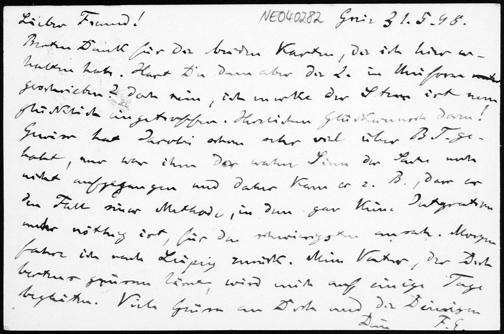 Lieber Freund! NE040282 Greiz 31.5.98.
Besten Dank für die beiden Karten, die ich hier er-
halten habe. Hast Du denn aber die 2. in Uniform
geschrieben? Doch nein, ich merke der ist nun
glücklich eingetroffen. Herzlichen Glückwunsch dazu!
Gewiss hat Jacobi schon sehr viel über B.T. ge-
habt, nur war ihm der wahre Sinn der Sache noch
nicht aufgegangen und daher kam er z. B., dass er
den Fall seiner Methode, in dem gar keine Integration
mehr nöthig ist, für den schwierigsten ansah. Morgen
fahre ich nach Leipzig zurück. Mein Vater, der Dich
bestens grüssen lässt, wird mich auf einige Tage
begleiten. Viele Grüsse an Dich und die Deinigen
Dein F.E.